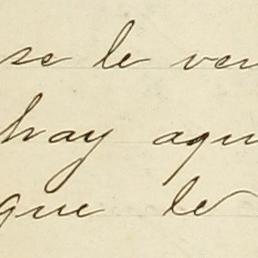 se le ven
hay aqu
que le